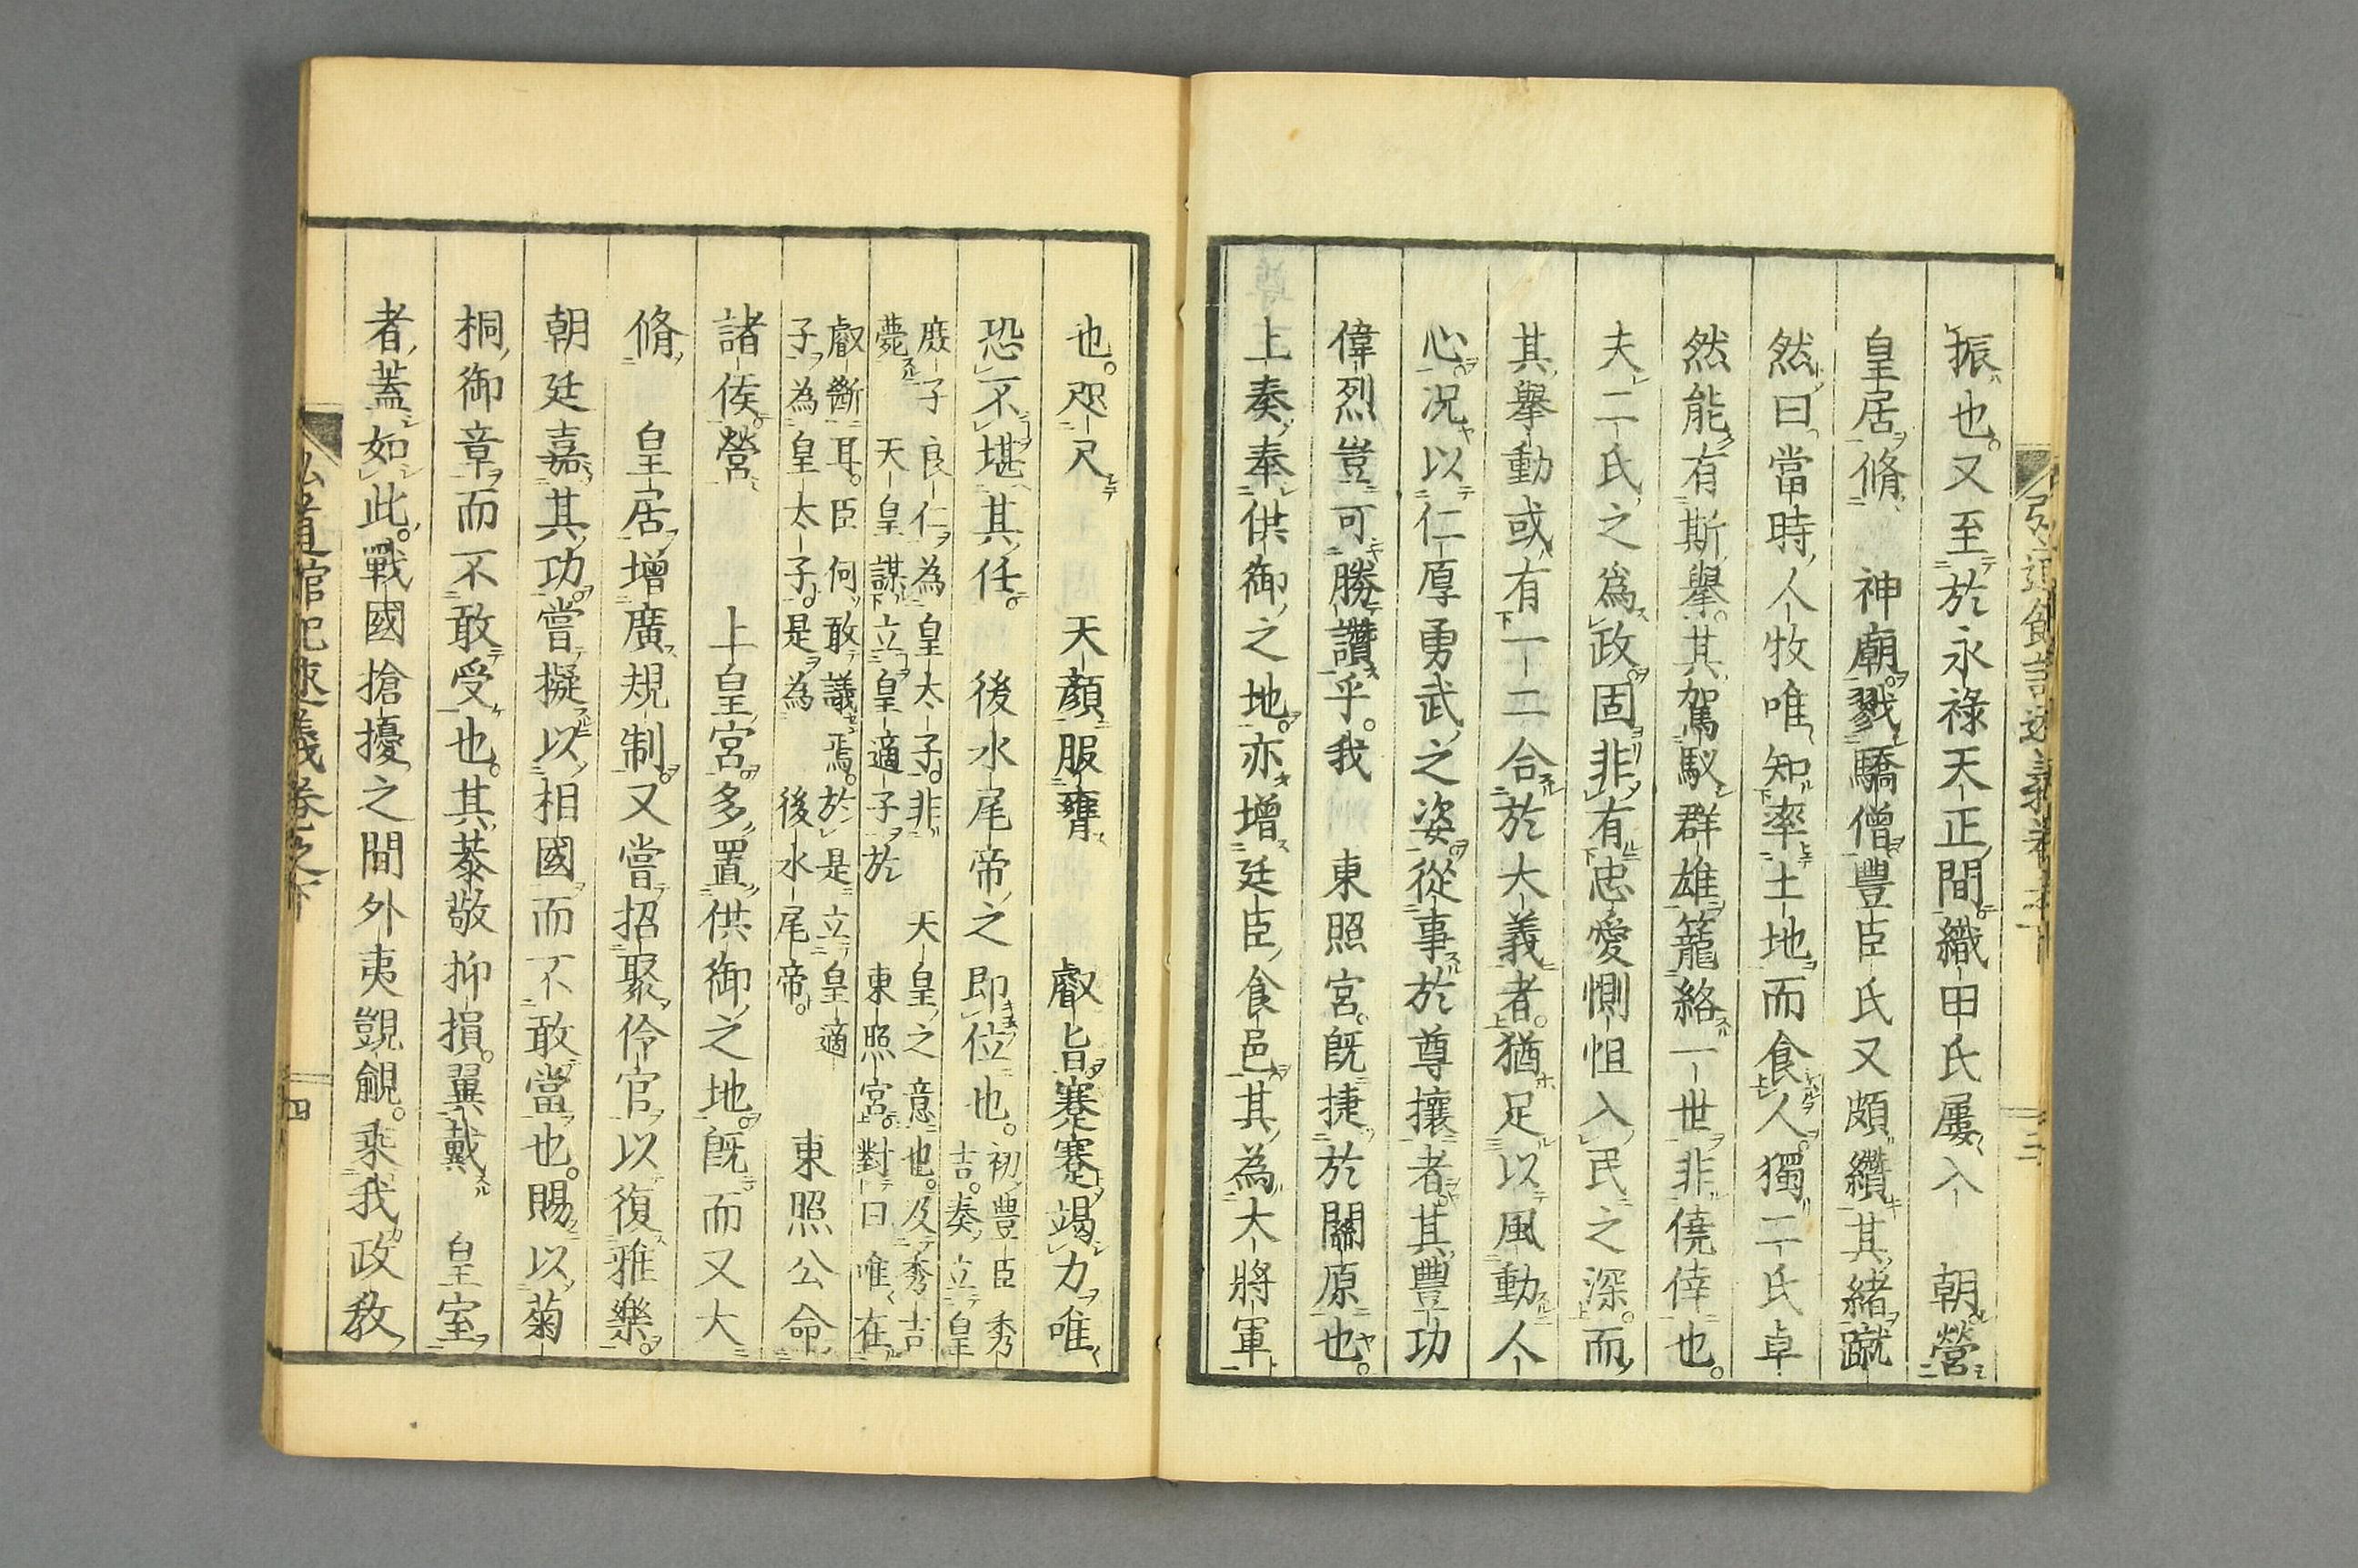 振也。又至於永祿天正間。織田氏屢入　朝營
皇居脩　神廟。戮驕僧。豊臣氏又頗纘其緒蹴
然曰。當時人牧唯知率土地而食人。獨二氏卓
然能有斯舉。其駕馭群雄籠絡一世非僥倖也。
夫二氏之爲政。固非有忠愛惻怛入民之深。而
其舉動或有一二合於大義者。猶足以風動人
心。况以仁厚勇武之姿。從事於尊攘者。其豊功
偉烈豈可勝讚乎。我　東照宮。既捷於關原也。
上奏奉供御之地。亦增廷臣食邑。其為大將軍
也。咫尺　天顏服膺　叡旨。蹇蹇竭力。唯
恐不堪其任。　後水尾帝之即位也。初豊臣秀
吉。奏立皇
庶子良仁為皇太子。非　天皇之意也。及秀吉
薨　天皇謀立皇適子於　東照宮。對曰唯在
叡斷耳。臣何敢議焉。於是立皇適
子為皇太子。是為　後水尾帝。　東照公命
諸侯。營　上皇宮。多置供御之地。既而又大
脩　皇居增廣規制。又嘗招聚伶官以復雅樂。
朝廷嘉其功。嘗擬以相國而不敢當也。賜以菊
桐御章。而不敢受也。其恭敬抑損。翼戴　皇室
者蓋如此。戰國搶擾之間外夷覬覦。乘我政教
弘道館記述義卷之下
四